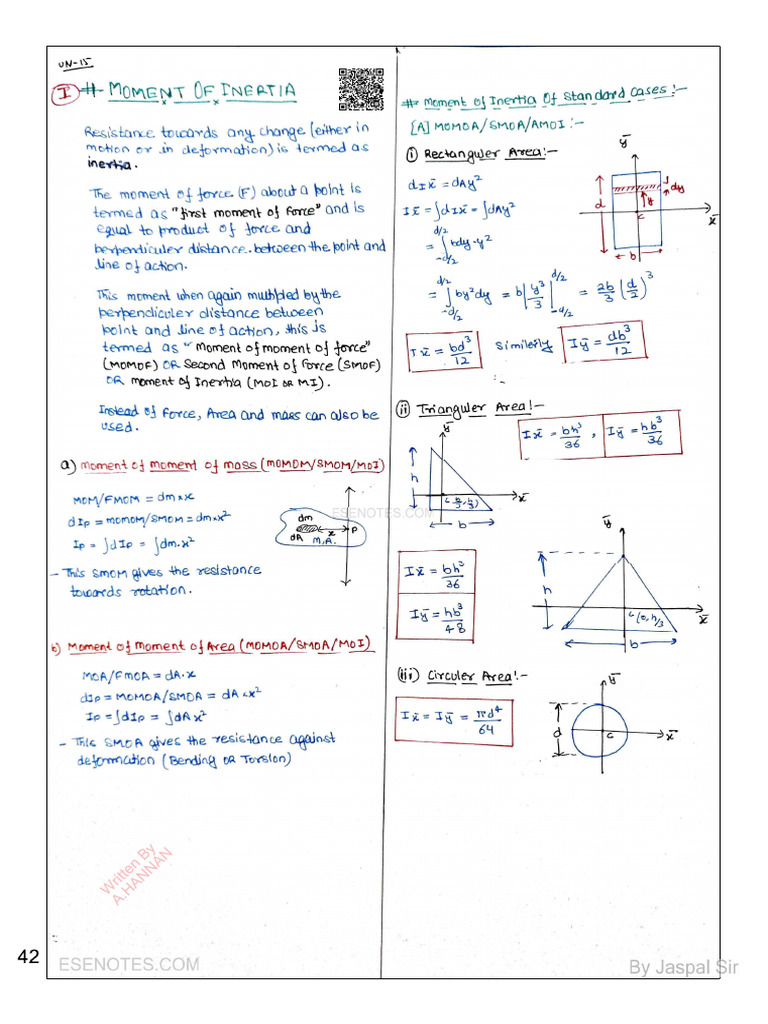 UN-15
I # MOMENT OF INERTIA
Resistance towards any change (either in
motion or in deformation) is termed as
inertia.
The moment of force (F) about a point is
termed as "first moment of force" and is
equal to product of force and
perpendiculer distance between the point and
line of action.
This moment when again multipled by the
perpendiculer distance between
point and line of action, this is
termed as "Moment of moment of force"
(MOMOF) OR Second Moment of Force (SMOF)
OR moment of Inertia (MOI OR MI).
Instead of Force, Area and mass can also be
used.
a) moment of moment of mass (MOMOM/SMOM/MOI)
MOM/FMOM = dm×x
dIp = MOMOM/SMOM = dm×x²
Ip = ∫dIp = ∫dm·x²
dm
dA
x
P
M,A.
- This SMOM gives the resistance
towards rotation.
b) Moment of Moment of Area (MOMOA/SMOA/MOI)
MOA/FMOA = dA·x
dIp = MOMOA/SMOA = dA·x²
Ip = ∫dIp = ∫dAx²
- This SMOA gives the resistance against
deformation (Bending OR Torsion)
Written By
A.HANNAN
# Moment of Inertia Of Standard Cases:-
[A] MOMOA/SMOA/AMOI:-
(i) Rectanguler Area:-
dIx̄ = dAy²
Ix̄ = ∫dIx̄ = ∫dAy²
= ∫_{-d/2}^{d/2} bdy·y²
= ∫_{-d/2}^{d/2} by²dy = b|y³/3|_{-d/2}^{d/2} = 2b/3 (d/2)³
Ix̄ = bd³/12 similerly Iȳ = db³/12
ȳ
dy
d
y
c
x̄
b
(ii) Trianguler Area:-
Ix̄ = bh³/36 , Iȳ = hb³/36
ȳ
h
c(b/3, h/3)
x̄
b
ESENOTES.COM
Ix̄ = bh³/36
Iȳ = hb³/48
ȳ
h
c(0, h/3
x̄
b
(iii) Circuler Area:-
Ix̄ = Iȳ = πd⁴/64
ȳ
d
c
x̄
42
ESENOTES.COM
By Jaspal Sir